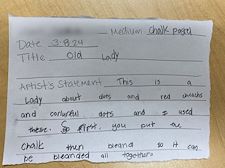 Medium Chalk pastel
Date 3-8-24
Title Old Lady
Artist's Statement This is a
Lady about dots and red
and colorful dots and I used
these. So first, you put the
Chalk then bleand so it can
be bleanded all together